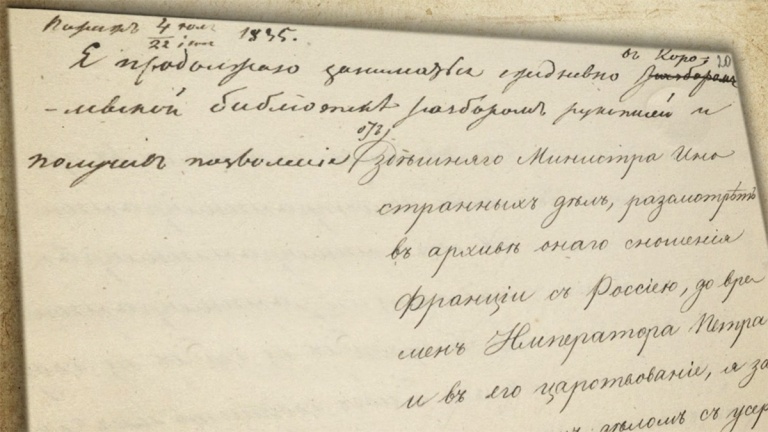 Парижъ 4 юля / 22 iюня 1835.
въ Коро- 20
Я продолжаю заниматься ежедневно разборомъ
-левской библіотекѣ разборомъ рукописей и
получивъ позволеніе отъ здѣшняго Министра Ино
странныхъ дѣлъ, разсмотрѣть
въ архивѣ онаго сношенія
Франціи съ Россіею, до вре
менъ Императора Петра
и въ его царствованіе, я за
дѣломъ съ усер